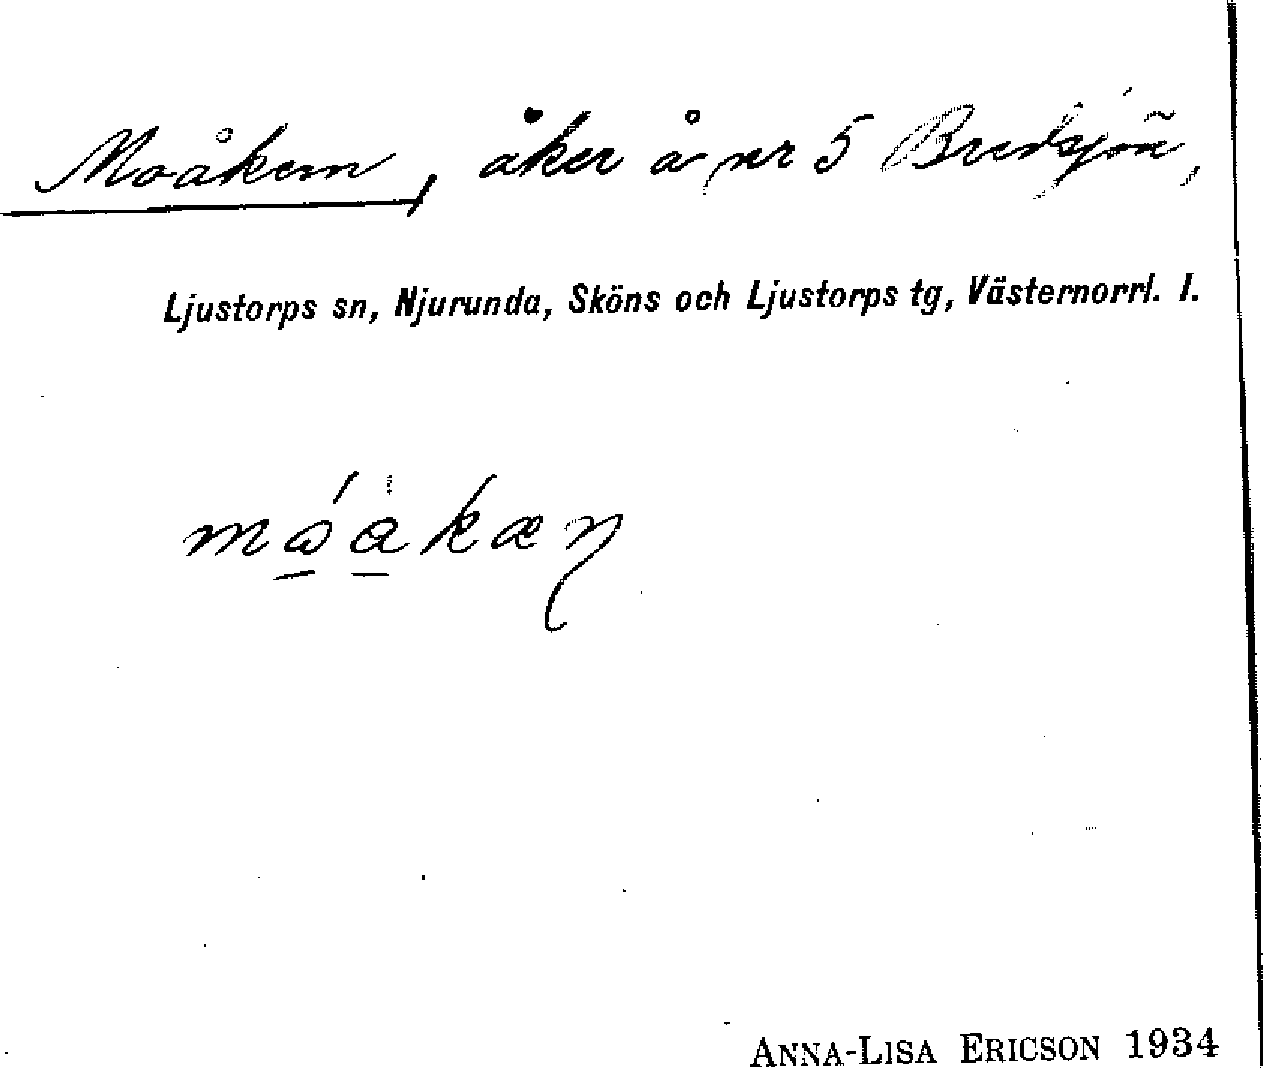 Moåkern, åker å nr 5 Bredsjön,
Ljustorps sn, Njurunda, Sköns och Ljustorps tg, Västernorrl. l.
ANNA-LISA ERICSON 1934